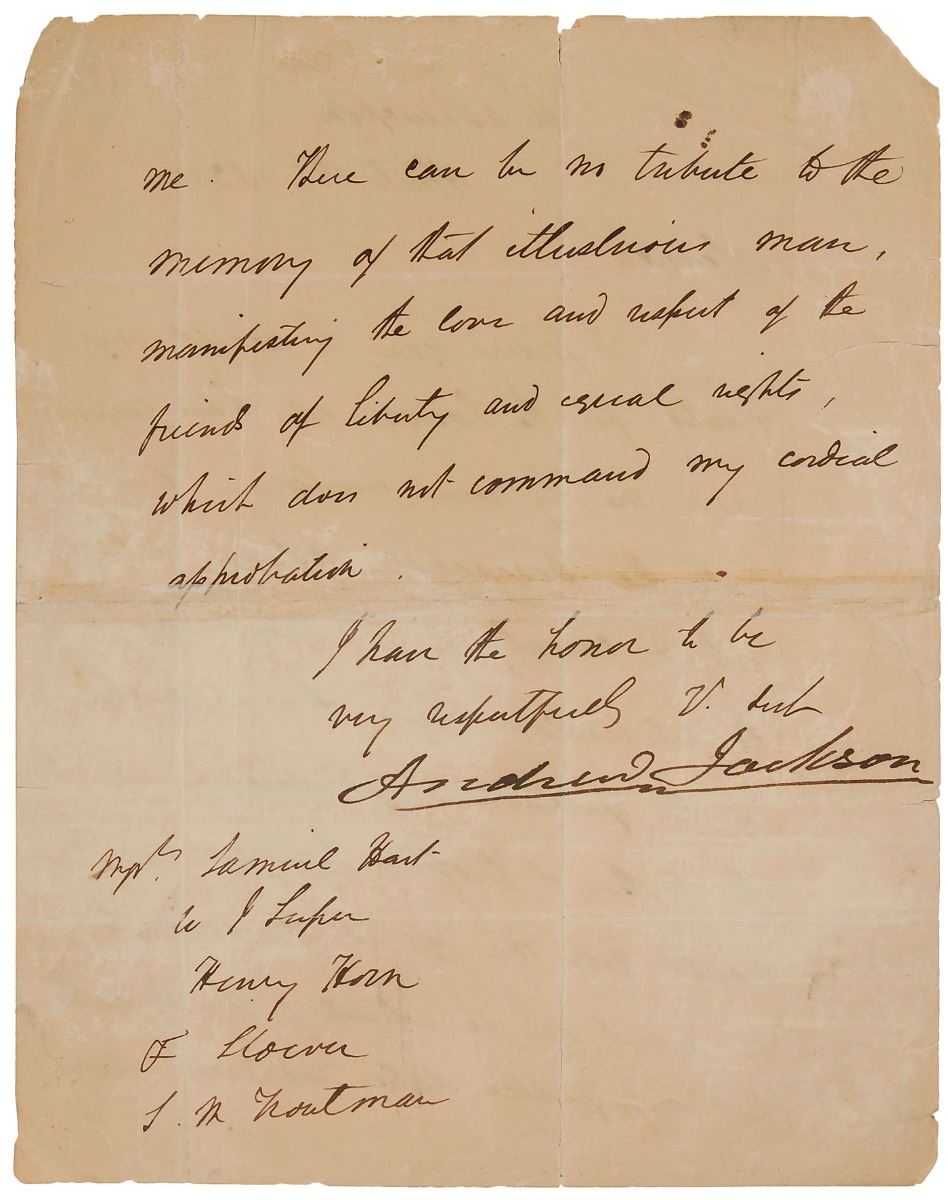 me. There can be no tribute to the
memory of that illustrious man,
manifesting the love and respect of the
friends of liberty and equal rights,
which does not command my cordial
approbation.
I have the honor to be
very respectfully Y. svt
Andrew Jackson
Samuel Hart
W J Leiper
Henry Horn
F Stoever
S. M Troutman